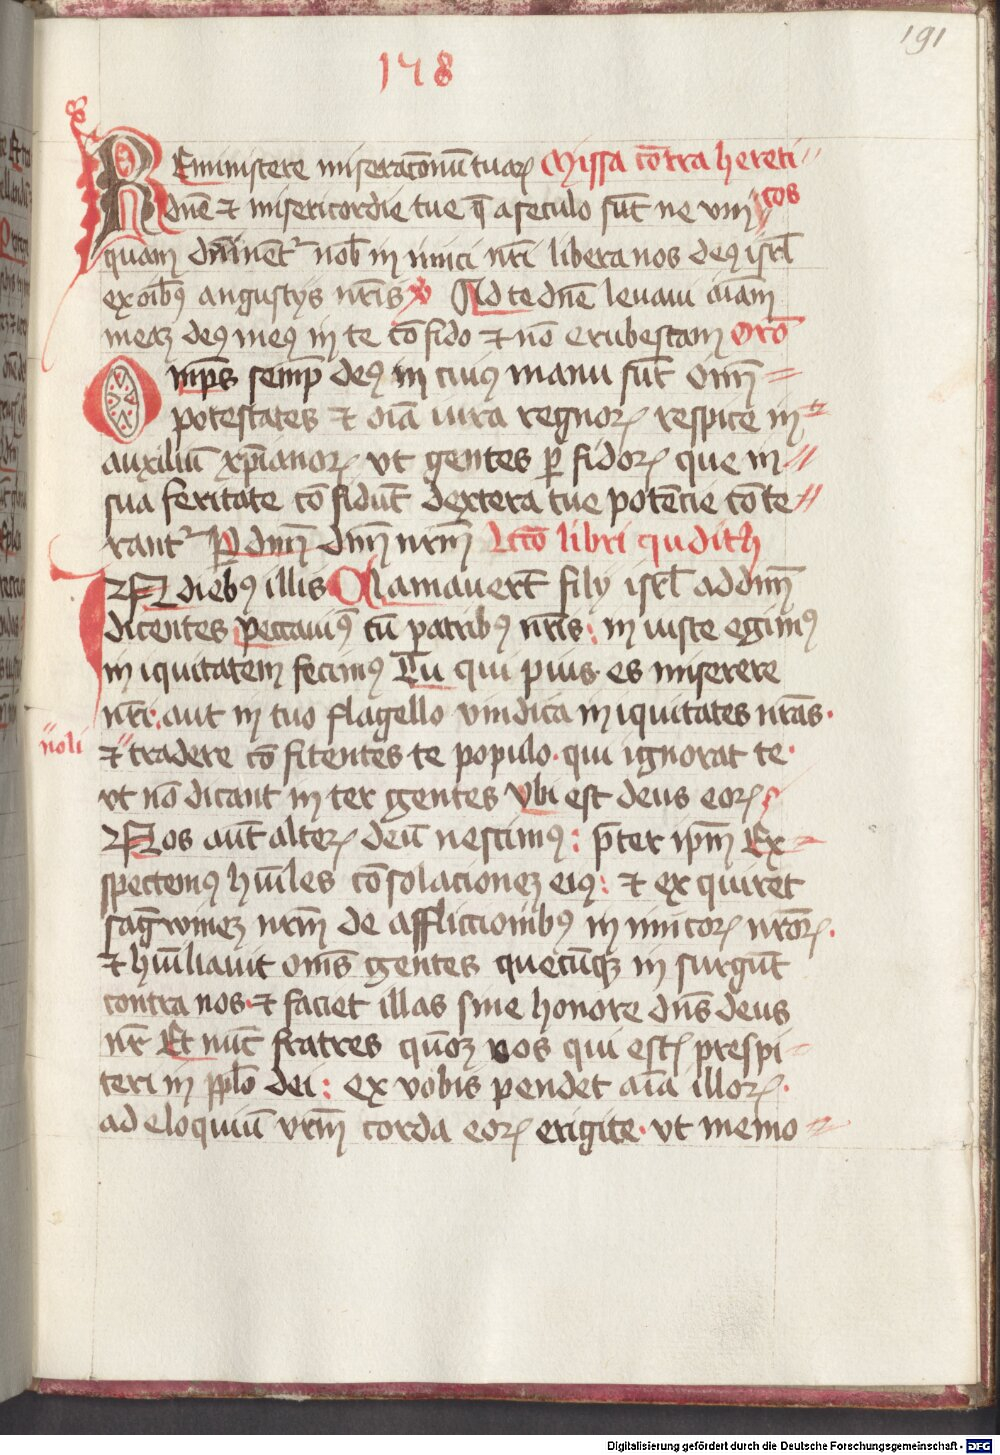 191
178
REminiscere miseracōnū tuaꝝ Missa cōtra hereti
cos
dn̄e ⁊ misericordie tue q̄ a seculo sūt ne vm̄
quam dn̄inēt᷑ nob̄ inimici nr̄i libera nos deꝰ isrl̄
ex oībꝰ angustijs nr̄is ℣ Ad te dn̄e levaui aīam
meaꝫ deꝰ meꝰ in te cōfido ⁊ nō erubescam Orō
Omp̄s semp̄ deꝰ in cuiꝰ manu sūt om̄
potestates ⁊ oīa iura regnoꝝ respice in
auxiliū xp̄ianoꝝ vt gentes ꝑfidoꝝ que in
sua feritate cōfidūt dextera tue potēcie cōte
rant᷑ P dn̄m dn̄m nr̄m Lc̄cō libri qudith
IN diebꝰ illis Clamauer̄t filij isrl̄ ad dn̄m
dicentes Peccauiꝰ cū patribꝰ nr̄is: in iuste egimꝰ
in iquitatem fecimꝰ Tu qui pius es miserere
nr̄i: aut in tuo flagello vindica in iquitates nr̄as.
noli
⁊ tradere cōfitentes te populo. qui ignorat te.
vt nō dicant in ter gentes Vbi est deus eoꝝ
Nos aūt alteꝝ deū nescimꝰ: p̄ter ip̄m Ex
spectemꝰ hūīles cōsolacioneꝫ eiꝰ: ⁊ exquiret
saḡwineꝫ nr̄m de affliccionibꝰ in imicoꝝ nr̄oꝝ.
⁊ hūīliauit om̄s gentes quecūqꝫ in surgūt
contra nos. ⁊ faciet illas sine honore dn̄s deus
nr̄ Et nūc fratres qm̄oꝫ vos qui estꝭ prespi
teri in pp̄lo dei: ex vobis pendet aīa illoꝝ.
ad eloquiū vr̄m corda eoꝝ erigite. vt memo
Digitalisierung gefördert durch die Deutsche Forschungsgemeinschaft - DFG